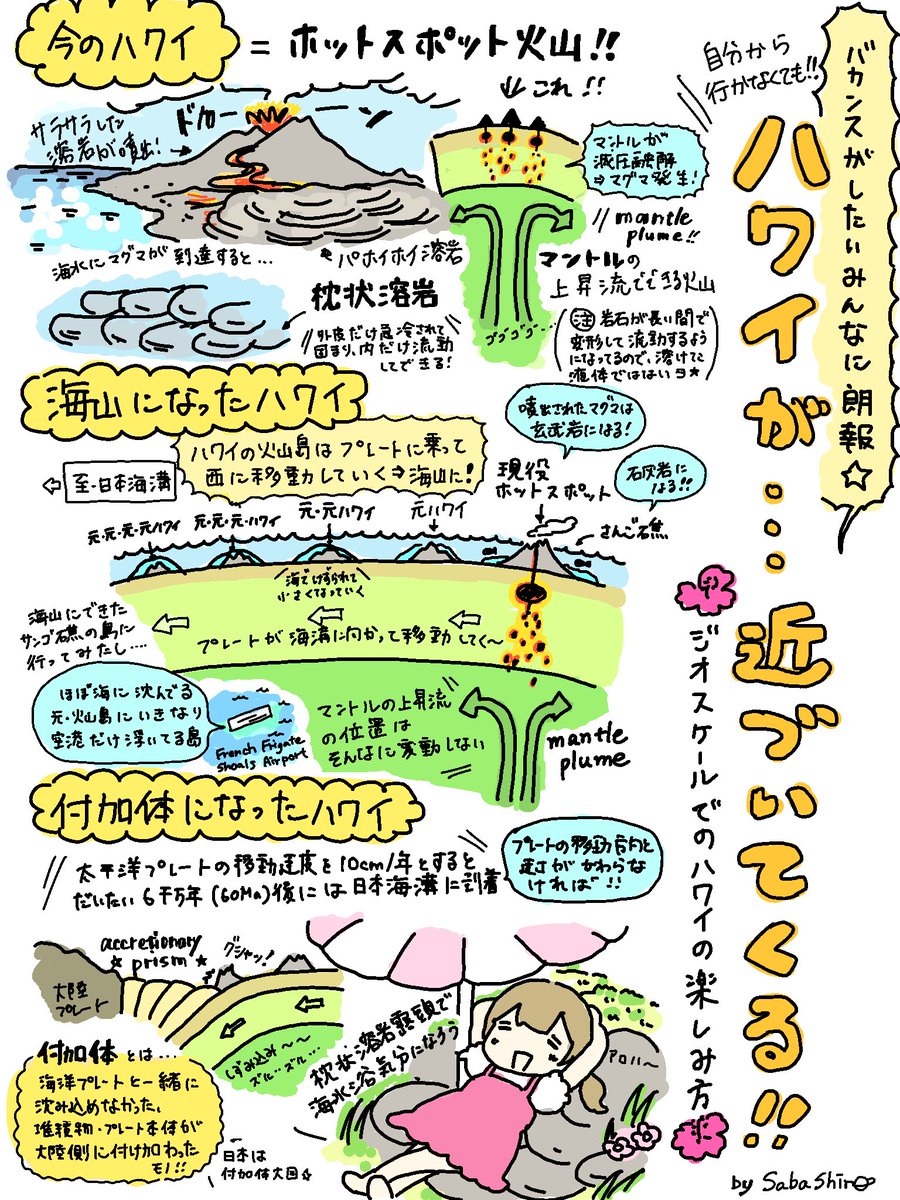 バカンスがしたいみんなに朗報☆
自分から
行かなくても!!
ハワイが…近づいてくる!!
ジオスケールでのハワイの楽しみ方
今のハワイ
= ホットスポット火山!!
これ!!
サラサラした
溶岩が噴出!
ドカーーン
マントルが
減圧融解
⇒マグマ発生!
mantle
plume!!
マントルの
上昇流でできる火山
ゴゴゴゴ…
注 岩石が長い間で
変形して流動するよう
になってるので、溶けて
液体ではないヨ★
パホイホイ溶岩
海水にマグマが到達すると…
枕状溶岩
外皮だけ急冷されて
固まり、内だけ流動
してできる!
海山になったハワイ
ハワイの火山島はプレートに乗って
西に移動していく⇒海山に!
至・日本海溝
噴出されたマグマは
玄武岩になる!
現役
ホットスポット
石灰岩に
なる!!
さんご礁
元・元・元・元ハワイ
元・元・元・ハワイ
元・元ハワイ
元ハワイ
海でけずられて
小さくなっていく
プレートが海溝に向かって移動してく〜
海山にできた
サンゴ礁の島に
行ってみたし…
ほぼ海に沈んでる
元・火山島にいきなり
空港だけ浮いてる島
French Frigate
Shoals Airport
マントルの上昇流
の位置は
そんなに変動しない
mantle
plume
付加体になったハワイ
太平洋プレートの移動速度を10cm/年とすると
だいたい6千万年(60Ma)後には日本海溝に到着
プレートの移動方向と
速さがかわらな
ければ!!
accretionary
★prism★
グシャッ!
大陸
プレート
しずみ込み〜〜
ズルズル…
付加体とは…
海洋プレートと一緒に
沈み込めなかった、
堆積物・プレート本体が
大陸側に付け加わった
モノ!!
日本は
付加体大国☆
枕状溶岩露頭で
海水浴気分になろう
アロハ〜
by SabaShiro